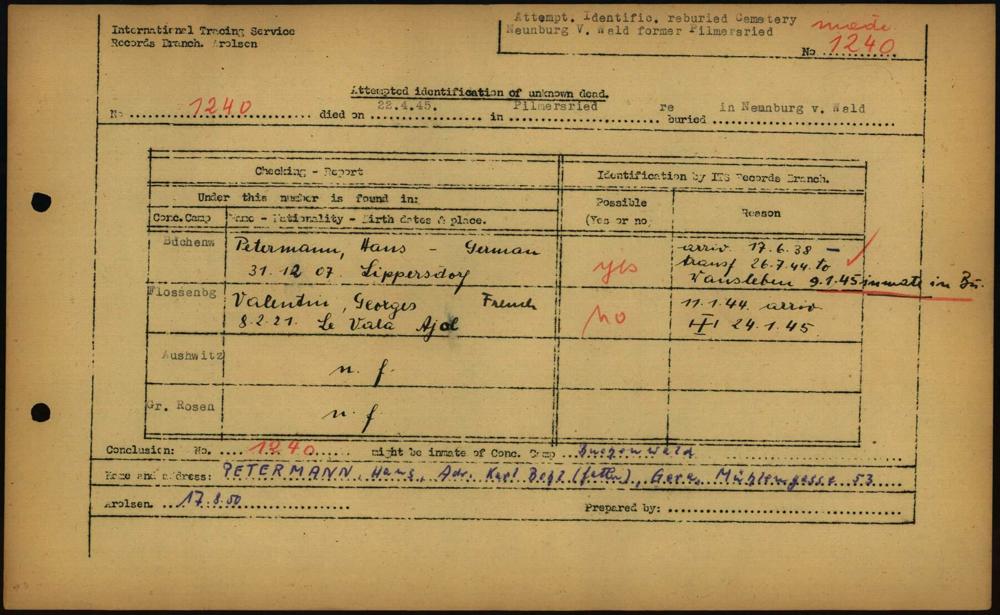 International Tracing Service
Records Branch. Arolsen
Attempt. Identific. reburied Cemetery
Neunburg V. Wald former Pilmersried
made
No 1240
Attempted identification of unknown dead.
No 1240 died on 22.4.45. in Pilmersried re buried in Neunburg v. Wald
Checking - Report
Identification by ITS Records Branch.
Under this number is found in:
Possible (Yes or no)
Reason
Conc. Camp Name - Nationality - Birth dates & place.
Buchenw Petermann, Hans - German
31. 12 07. Lippersdorf
yes
arriv. 17.6.38 -
transf 26.7.44. to
Wansleben 9.1.45 inmate in Bu.
Flossenbg Valentin, Georges French
8.2.21. Le Vala Ajol
no
11.1.44. arriv
24.1.45.
Aushwitz n. f.
Gr. Rosen n. f
Conclusion: No. 1240. might be inmate of Conc. Camp Buchenwald
Name and address: PETERMANN, Hans, Adr. Karl (Vetter), Gera, Mühlengasse 53
Arolsen. 17.8.50 Prepared by: